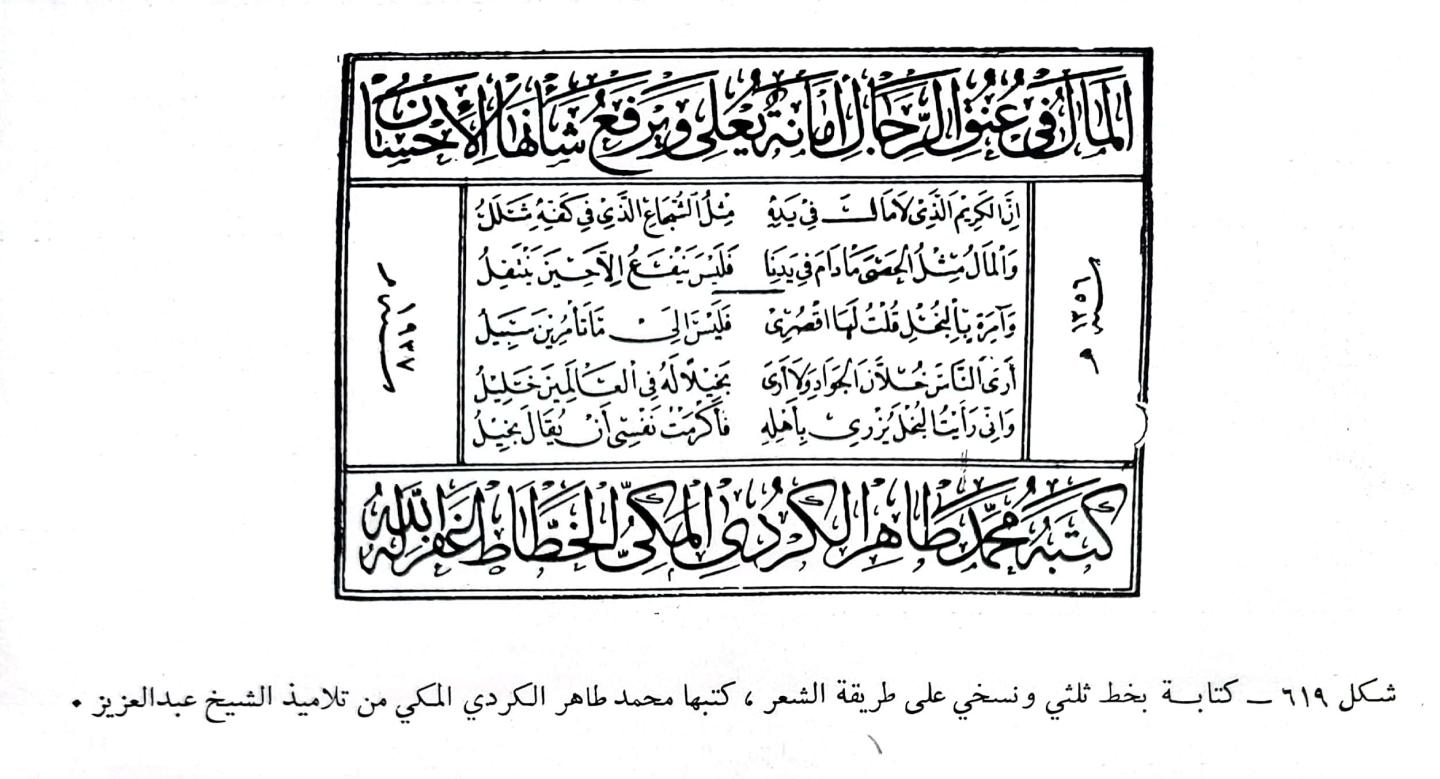 المَالُ فِي عُنُقِ الرِّجَالِ أَمَانَةٌ يُعْلِي وَيَرْفَعُ شَأْنَهَا الْإِحْسَانُ
إِنَّ الكَرِيمَ الَّذِي لَا مَالَ فِي يَدِهِ مِثْلُ الشُّجَاعِ الَّذِي فِي كَفِّهِ شَلَلُ
وَالمَالُ مِثْلُ الحَصَى مَا دَامَ فِي يَدِنَا فَلَيْسَ يَنْفَعُ إِلَّا حِينَ يَنْتَقِلُ
وَآمِرَةٍ بِالبُخْلِ قُلْتُ لَهَا اقْصُرِي فَلَيْسَ إِلَى مَا تَأْمُرِينَ سَبِيلُ
أَرَى النَّاسَ خُلَّانَ الجَوَادِ وَلَا أَرَى بَخِيلًا لَهُ فِي العَالَمِينَ خَلِيلُ
وَإِنِّي رَأَيْتُ البُخْلَ يُزْرِي بِأَهْلِهِ فَأَكْرَمْتُ نَفْسِي أَنْ يُقَالَ بَخِيلُ
سنة ١٣٥٦ هـ
سنة ١٩٣٧ م
كَتَبَهُ مُحَمَّد طَاهِر الكُرْدِي المَكِّيّ الخَطَّاط غَفَرَ اللهُ لَهُ
شكل ٦١٩ ـ كتابة بخط ثلثي ونسخي على طريقة الشعر ، كتبها محمد طاهر الكردي المكي من تلاميذ الشيخ عبدالعزيز .